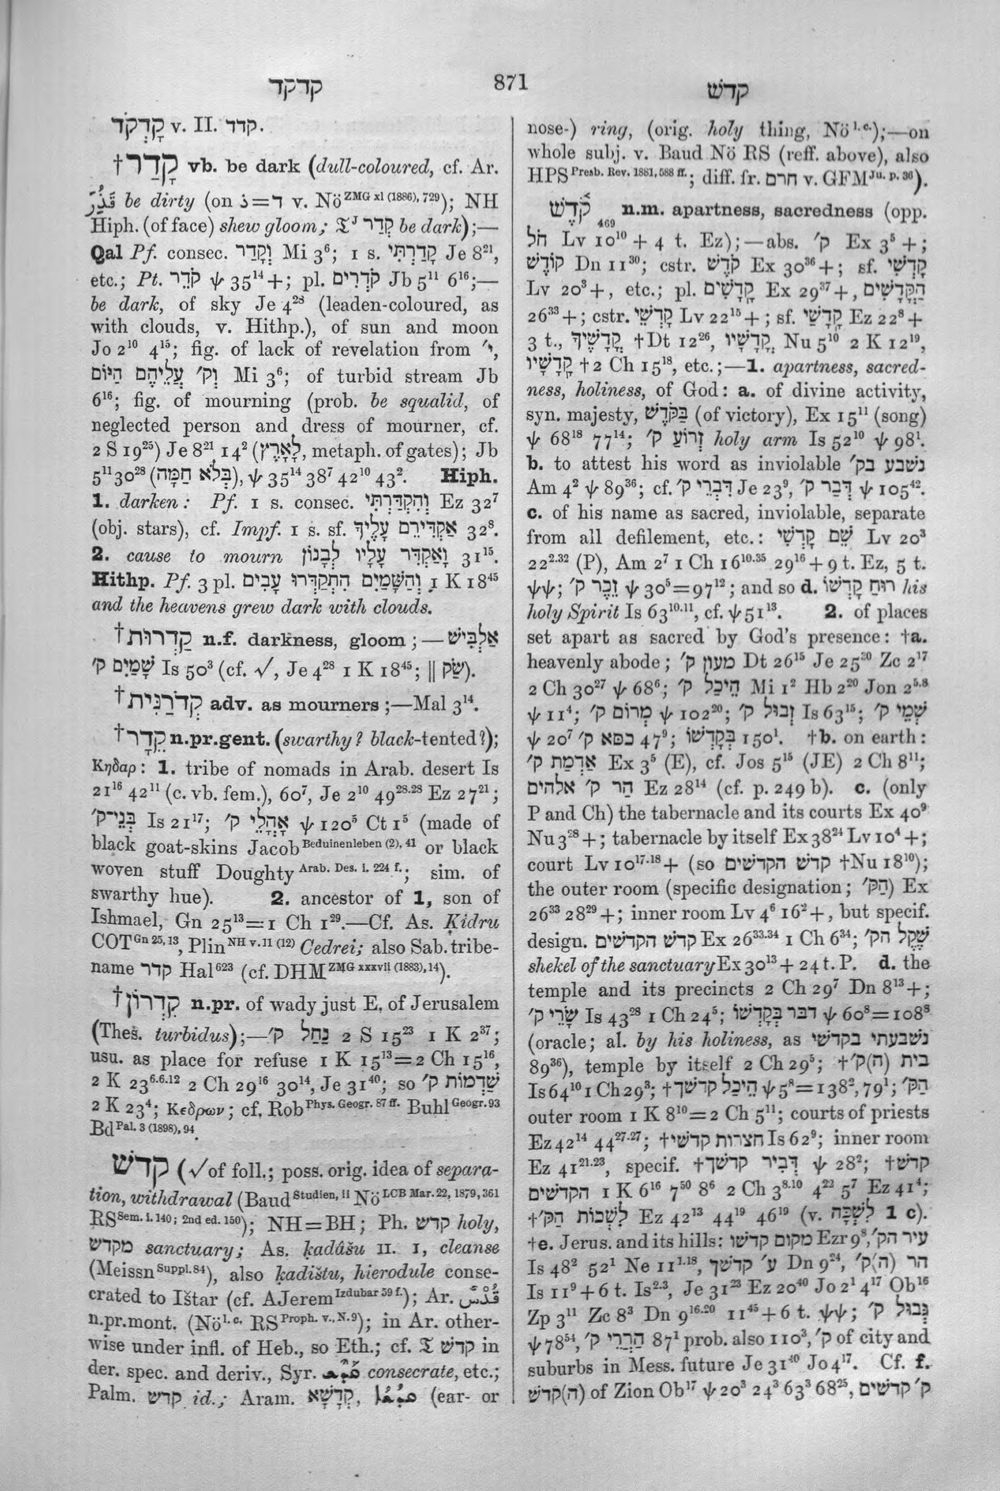 קדקד
871
קדשׁ
קָדְקֹד v. II. קדד.
† קָדַר vb. be dark (dull-coloured, cf. Ar.
be dirty (on ذ=ד v. Nö ZMG xl (1886), 729); NH
Hiph. (of face) shew gloom; 𝔗J קְדַר be dark);—
Qal Pf. consec. וְקָדַר Mi 3⁶; 1 s. קָדַרְתִּי Je 8²¹,
etc.; Pt. קֹדֵר ψ 35¹⁴ +; pl. קֹדְרִים Jb 5¹¹ 6¹⁶;—
be dark, of sky Je 4²⁸ (leaden-coloured, as
with clouds, v. Hithp.), of sun and moon
Jo 2¹⁰ 4¹⁵; fig. of lack of revelation from י׳,
וְק׳ עֲלֵיהֶם הַיּוֹם Mi 3⁶; of turbid stream Jb
6¹⁶; fig. of mourning (prob. be squalid, of
neglected person and dress of mourner, cf.
2 S 19²⁵) Je 8²¹ 14² (לָאָרֶץ, metaph. of gates); Jb
5¹¹ 30²⁸ (בְּלֹא חַמָּה), ψ 35¹⁴ 38⁷ 42¹⁰ 43². Hiph.
1. darken: Pf. 1 s. consec. וְהִקְדַּרְתִּי Ez 32⁷
(obj. stars), cf. Impf. 1 s. sf. אַקְדִּירֵם עָלֶיךָ 32⁸.
2. cause to mourn וָאַקְדִּר עָלָיו לְבָנוֹן 31¹⁵.
Hithp. Pf. 3 pl. וְהַשָּׁמַיִם הִתְקַדְּרוּ עָבִים 1 K 18⁴⁵
and the heavens grew dark with clouds.
† קַדְרוּת n.f. darkness, gloom;—אַלְבִּישׁ
שָׁמַיִם ק׳ Is 50³ (cf. √, Je 4²⁸ 1 K 18⁴⁵; ‖ שַׂק).
† קְדֹרַנִּית adv. as mourners;—Mal 3¹⁴.
† קֵדָר n.pr.gent. (swarthy? black-tented?);
Κηδαρ: 1. tribe of nomads in Arab. desert Is
21¹⁶ 42¹¹ (c. vb. fem.), 60⁷, Je 2¹⁰ 49²⁸·²⁸ Ez 27²¹;
בְּנֵי־ק׳ Is 21¹⁷; אָהֳלֵי ק׳ ψ 120⁵ Ct 1⁵ (made of
black goat-skins Jacob Beduinenleben (2), 41 or black
woven stuff Doughty Arab. Des. i. 224 f.; sim. of
swarthy hue). 2. ancestor of 1, son of
Ishmael, Gn 25¹³=1 Ch 1²⁹.—Cf. As. Ḳidru
COT Gn 25, 13, Plin NH v. 11 (12) Cedrei; also Sab. tribe-
name קדר Hal 623 (cf. DHM ZMG xxxvii (1883), 14).
† קִדְרוֹן n.pr. of wady just E. of Jerusalem
(Thes. turbidus);—נַחַל ק׳ 2 S 15²³ 1 K 2³⁷;
usu. as place for refuse 1 K 15¹³=2 Ch 15¹⁶,
2 K 23⁶·⁶·¹² 2 Ch 29¹⁶ 30¹⁴, Je 31⁴⁰; so שַׁדְמוֹת ק׳
2 K 23⁴; Κεδρων; cf. Rob Phys. Geogr. 87 ff. Buhl Geogr. 93
Bd Pal. 3 (1898), 94.
קדשׁ (√ of foll.; poss. orig. idea of separa-
tion, withdrawal (Baud Studien, ii Nö LCB Mar. 22, 1879, 361
RS Sem. i. 140; 2nd ed. 150); NH=BH; Ph. קדש holy,
מקדש sanctuary; As. ḳadâšu II. 1, cleanse
(Meissn Suppl. 84), also ḳadištu, hierodule conse-
crated to Ištar (cf. AJerem Izdubar 59 f.); Ar. قُدْس
n.pr.mont. (Nö l.c. RS Proph. v., N. 9); in Ar. other-
wise under infl. of Heb., so Eth.; cf. 𝔗 קדשׁ in
der. spec. and deriv., Syr. consecrate, etc.;
Palm. קדש id.; Aram. קְדָשָׁא, (ear- or
nose-) ring, (orig. holy thing, Nö l.c.);—on
whole subj. v. Baud Nö RS (reff. above), also
HPS Presb. Rev. 1881, 588 ff.; diff. fr. חרם v. GFM Ju. p. 36).
קֹדֶשׁ 469 n.m. apartness, sacredness (opp.
חֹל Lv 10¹⁰ + 4 t. Ez);—abs. ק׳ Ex 3⁵ +;
קוֹדֶשׁ Dn 11³⁰; cstr. קֹדֶשׁ Ex 30³⁶ +; sf. קָדְשִׁי
Lv 20³ +, etc.; pl. קֳדָשִׁים Ex 29³⁷ +, הַקֳּדָשִׁים
26³³ +; cstr. קָדְשֵׁי Lv 22¹⁵ +; sf. קָדָשַׁי Ez 22⁸ +
3 t., קָדָשֶׁיךָ † Dt 12²⁶, קֳדָשָׁיו Nu 5¹⁰ 2 K 12¹⁹,
קָדָשָׁיו † 2 Ch 15¹⁸, etc.;—1. apartness, sacred-
ness, holiness, of God: a. of divine activity,
syn. majesty, בַּקֹּדֶשׁ (of victory), Ex 15¹¹ (song)
ψ 68¹⁸ 77¹⁴; זְרוֹעַ ק׳ holy arm Is 52¹⁰ ψ 98¹.
b. to attest his word as inviolable נשבע בק׳
Am 4² ψ 89³⁶; cf. דִּבְרֵי ק׳ Je 23⁹, דְּבַר ק׳ ψ 105⁴².
c. of his name as sacred, inviolable, separate
from all defilement, etc.: שֵׁם קָדְשִׁי Lv 20³
22²·³² (P), Am 2⁷ 1 Ch 16¹⁰·³⁵ 29¹⁶ + 9 t. Ez, 5 t.
ψψ; זֵכֶר ק׳ ψ 30⁵=97¹²; and so d. רוּחַ קָדְשׁוֹ his
holy Spirit Is 63¹⁰·¹¹, cf. ψ 51¹³. 2. of places
set apart as sacred by God's presence: †a.
heavenly abode; מעון ק׳ Dt 26¹⁵ Je 25³⁰ Zc 2¹⁷
2 Ch 30²⁷ ψ 68⁶; הֵיכַל ק׳ Mi 1² Hb 2²⁰ Jon 2⁵·⁸
ψ 11⁴; מְרוֹם ק׳ ψ 102²⁰; זְבוּל ק׳ Is 63¹⁵; שְׁמֵי ק׳
ψ 20⁷ כסא ק׳ 47⁹; בְּקָדְשׁוֹ 150¹. †b. on earth:
אַדְמַת ק׳ Ex 3⁵ (E), cf. Jos 5¹⁵ (JE) 2 Ch 8¹¹;
הַר ק׳ אלהים Ez 28¹⁴ (cf. p. 249 b). c. (only
P and Ch) the tabernacle and its courts Ex 40⁹
Nu 3²⁸ +; tabernacle by itself Ex 38²⁴ Lv 10⁴ +;
court Lv 10¹⁷·¹⁸ + (so קדש הקדשים † Nu 18¹⁰);
the outer room (specific designation; הַקּ׳) Ex
26³³ 28²⁹ +; inner room Lv 4⁶ 16² +, but specif.
design. קדש הקדשים Ex 26³³·³⁴ 1 Ch 6³⁴; שֶׁקֶל הק׳
shekel of the sanctuary Ex 30¹³ + 24 t. P. d. the
temple and its precincts 2 Ch 29⁷ Dn 8¹³ +;
שָׂרֵי ק׳ Is 43²⁸ 1 Ch 24⁵; דבר בְּקָדְשׁוֹ ψ 60⁸=108⁸
(oracle; al. by his holiness, as נשבעתי בקדשי
89³⁶), temple by itself 2 Ch 29⁵; † בית (ה)ק׳
Is 64¹⁰ 1 Ch 29³; † הֵיכַל קדשך ψ 5⁸=138², 79¹; הַקּ׳
outer room 1 K 8¹⁰=2 Ch 5¹¹; courts of priests
Ez 42¹⁴ 44²⁷·²⁷; † חצרות קדשי Is 62⁹; inner room
Ez 41²¹·²³, specif. † דְּבִיר קדשך ψ 28²; † קדש
הקדשים 1 K 6¹⁶ 7⁵⁰ 8⁶ 2 Ch 3⁸·¹⁰ 4²² 5⁷ Ez 41⁴;
† לִשְׁכוֹת הַקּ׳ Ez 42¹³ 44¹⁹ 46¹⁹ (v. לִשְׁכָּה 1 c).
†e. Jerus. and its hills: מקום קדשו Ezr 9⁸, עיר הק׳
Is 48² 52¹ Ne 11¹·¹⁸, ע׳ קדשך Dn 9²⁴, הר (ה)ק׳
Is 11⁹ + 6 t. Is²·³, Je 31²³ Ez 20⁴⁰ Jo 2¹ 4¹⁷ Ob¹⁶
Zp 3¹¹ Zc 8³ Dn 9¹⁶·²⁰ 11⁴⁵ + 6 t. ψψ; גְּבוּל ק׳
ψ 78⁵⁴, הַרְרֵי ק׳ 87¹ prob. also 110³, ק׳ of city and
suburbs in Mess. future Je 31⁴⁰ Jo 4¹⁷. Cf. f.
(ה)קדשׁ of Zion Ob¹⁷ ψ 20³ 24³ 63³ 68²⁵, ק׳ קדשים